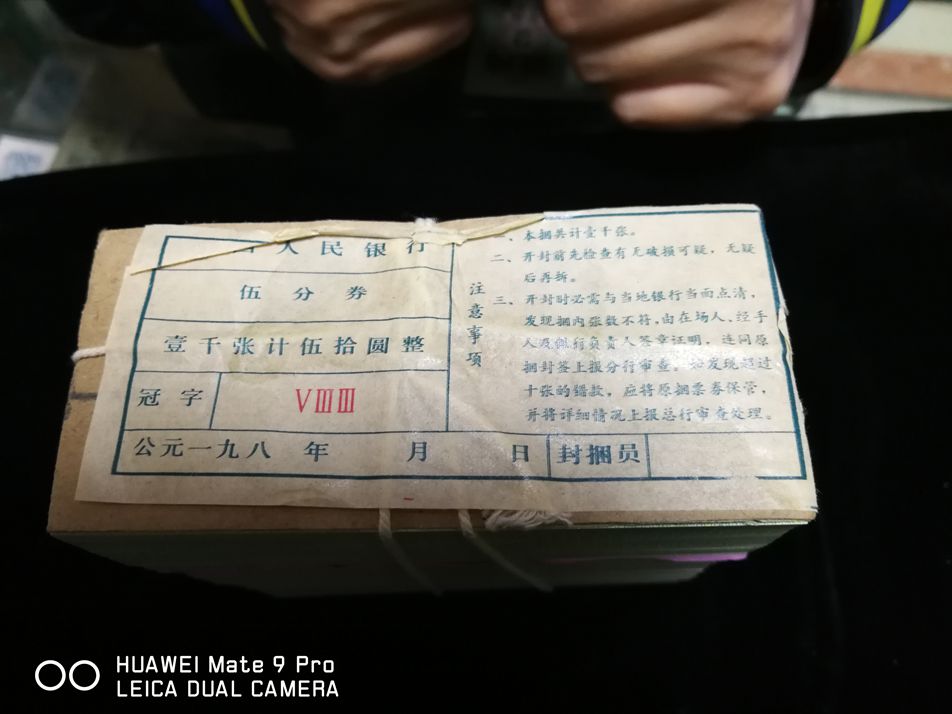 人民银行
伍分券
壹千张计伍拾圆整
冠字
VⅢⅢ
公元一九八 年 月 日
封捆员
注意事项
一、本捆共计壹千张。
二、开封前先检查有无破损可疑，无疑
后再拆。
三、开封时必需与当地银行当面点清，
发现捆内张数不符，由在场人、经手
人及佩行负责人签章证明，连同原
捆封签上报分行审查。如发现超过
十张的错款，应将原捆票券保管，
并将详细情况上报总行审查处理。
HUAWEI Mate 9 Pro
LEICA DUAL CAMERA